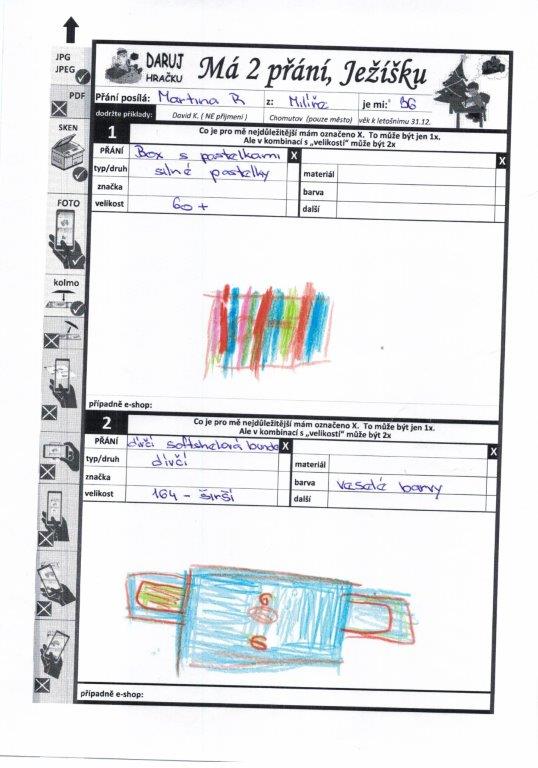 JPG
JPEG
PDF
SKEN
FOTO
kolmo
DARUJ
HRAČKU
Má 2 přání, Ježíšku
Přání posílá: Martina R z: Milíře je mi:
dodržte příklady: David K. ( NE příjmení ) Chomutov (pouze město) věk k letošnímu 31.12.
1
Co je pro mě nejdůležitější mám označeno X. To může být jen 1x.
Ale v kombinaci s „velikostí“ může být 2x
PŘÁNÍ Box s pastelkami X X
typ/druh silné pastelky materiál
značka barva
velikost 60+ další
případně e-shop:
2
Co je pro mě nejdůležitější mám označeno X. To může být jen 1x.
Ale v kombinaci s „velikostí“ může být 2x
PŘÁNÍ dívčí softshelová bunda X X
typ/druh dívčí materiál
značka barva veselé barvy
velikost 164 - širší další
případně e-shop: